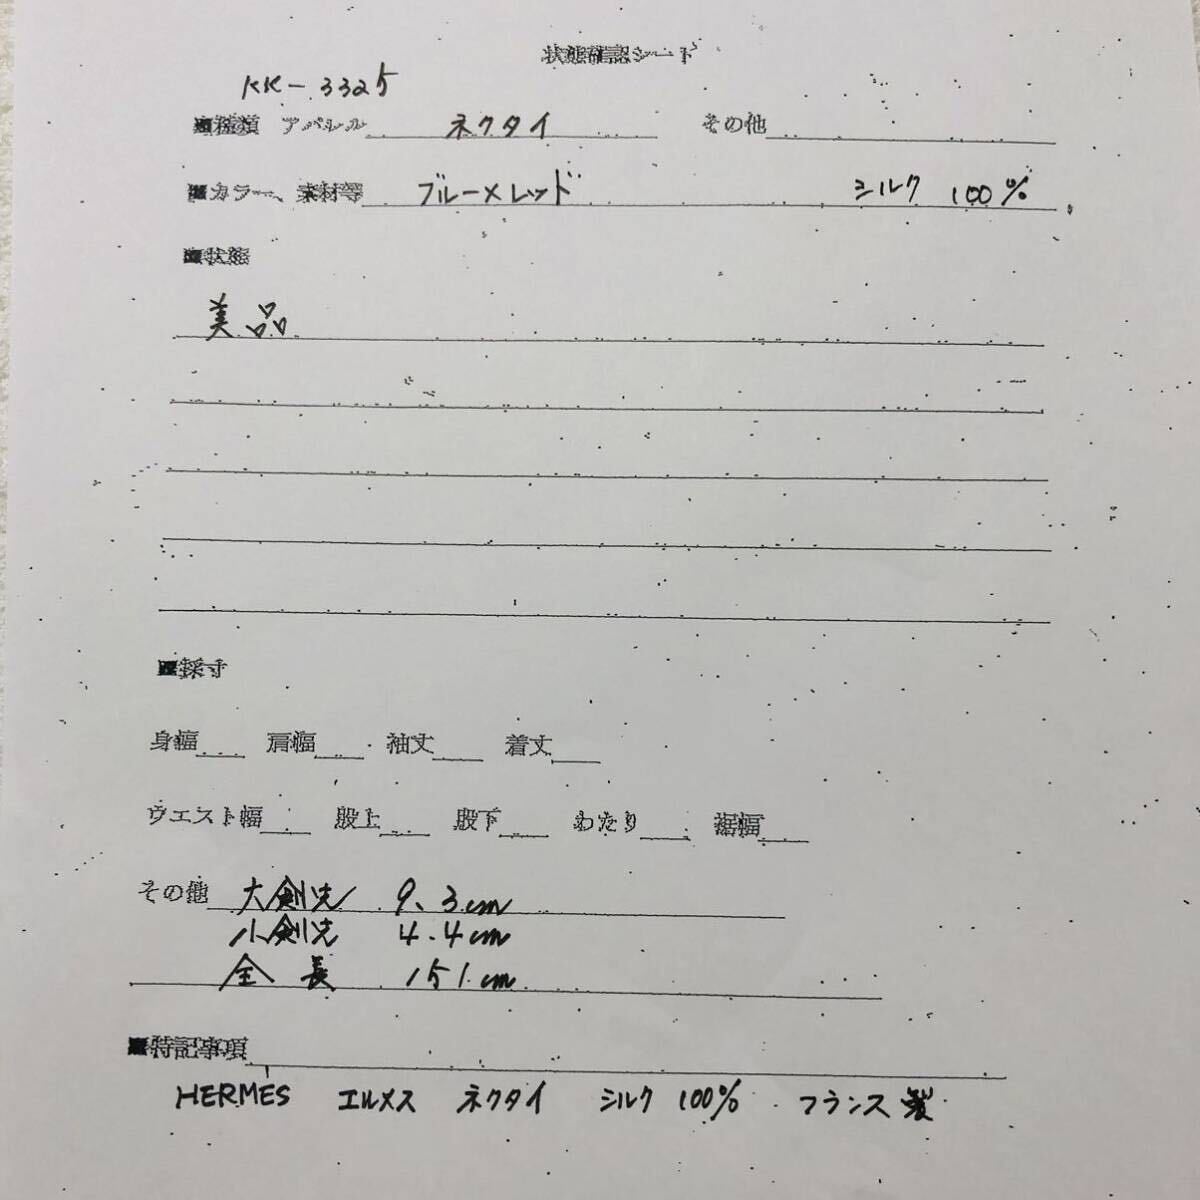 状態確認シート
KK-3325
■種類 アパレル ネクタイ その他
■カラー、素材等 ブルー×レッド シルク 100%
■状態
美品
■採寸
身幅 肩幅 袖丈 着丈
ウエスト幅 股上 股下 わたり 裾幅
その他 大剣先 9.3cm
小剣先 4.4cm
全長 151cm
■特記事項
HERMES エルメス ネクタイ シルク 100% フランス製